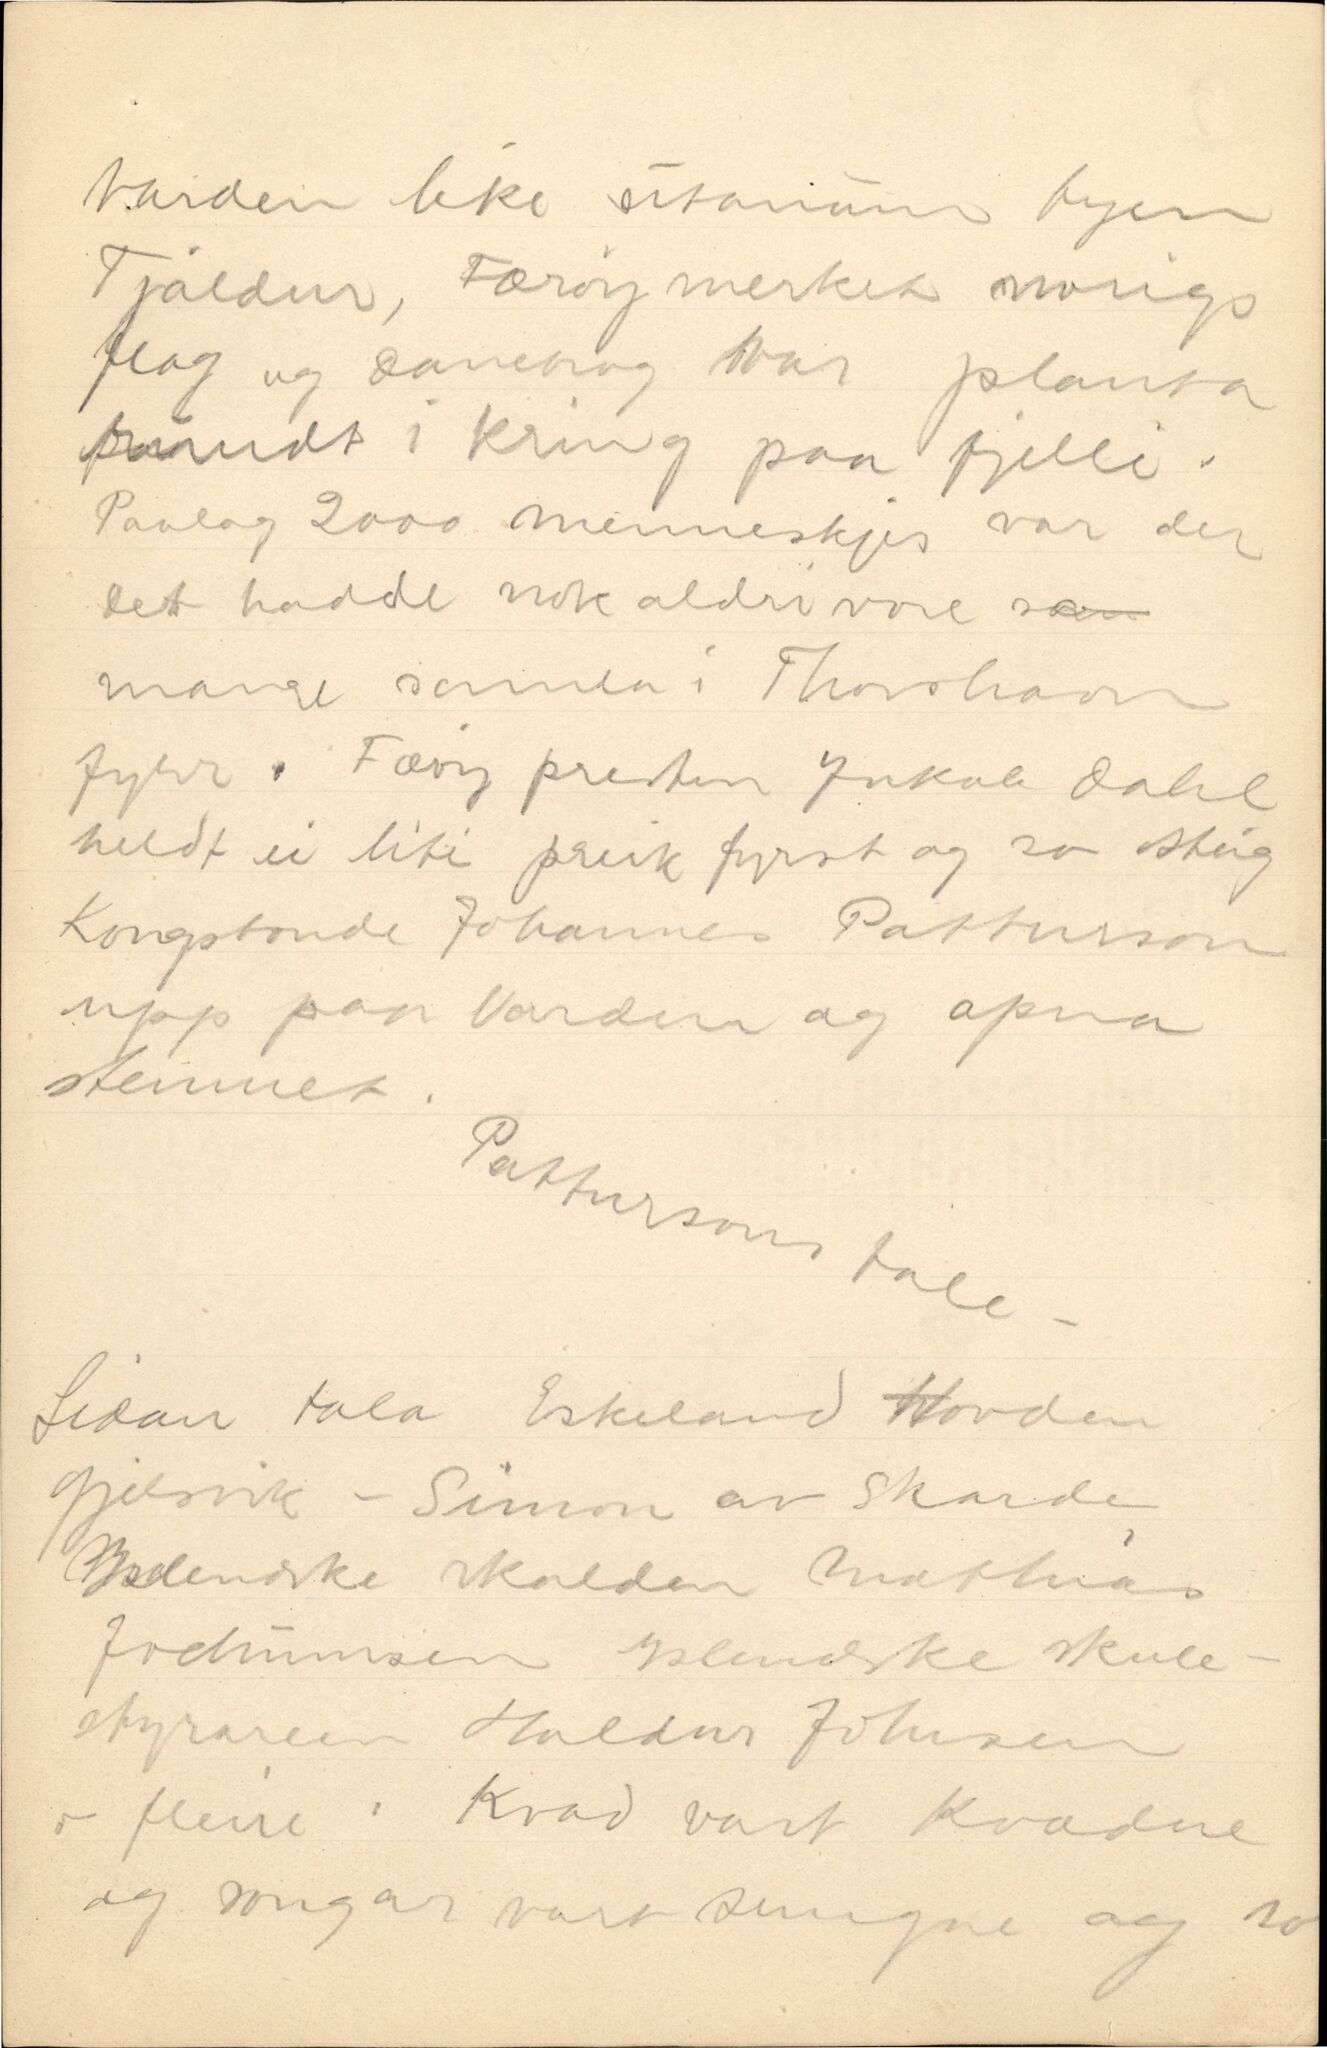 Varden like utanum byen
Tjaldur, Færøymerket norigs
flag og danebrog var planta
rundt i kring paa fjelli.
Paalag 2000 menneskjer var der
det hadde nok aldri vore
mange samla i Thorshavn
fyrr. Færøy presten Jakob Dahl
heldt ei liti preik fyrst og so steig
Kongsbonde Johannes Patturson
upp paa Varden og opna
stemnet.
Pattursons tale –
Sidan tala Eskeland Hovden
Gjelsvik – Simon av Skarde
Yslendske skalden Mathias
Jochumsen yslendske skule-
styraren Haldur Johnsen
o fleire. Kvad vart kvædne
og songar vart sungne og so